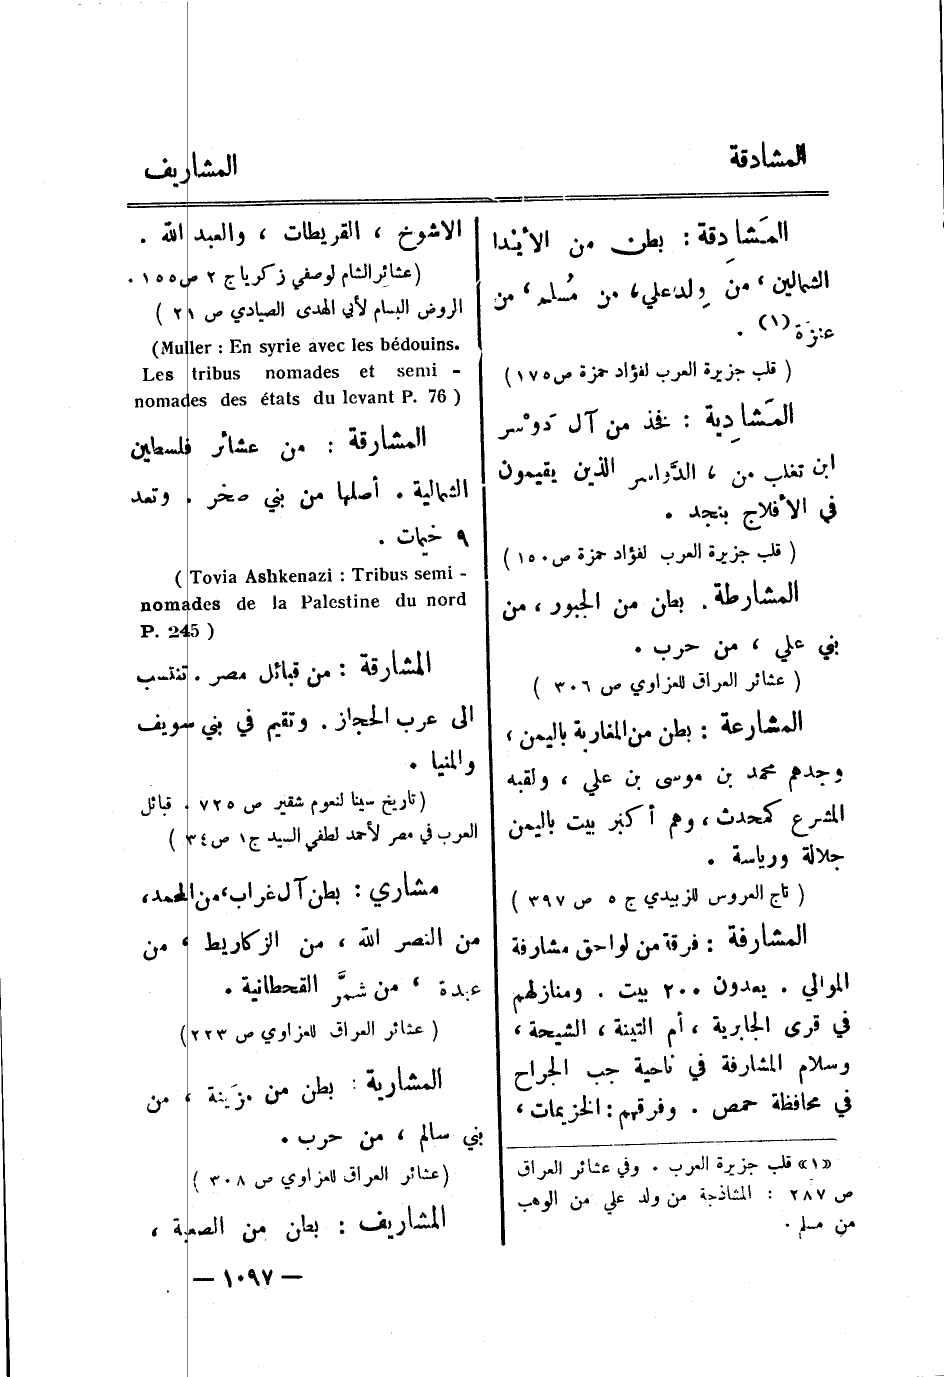 المشادقة
المشاريف
المَشادِقة : بطن من الأيْدا
الشمالين ، من وِلد علي ، من مُسلم ، من
عنزَة (١) .
( قلب جزيرة العرب لفؤاد حمزة ص ١٧٥ )
المَشادِية : فخذ من آل دَوْسر
ابن تغلب من ، الدَّواسر الذين يقيمون
في الأفلاج بنجد .
( قلب جزيرة العرب لفؤاد حمزة ص ١٥٠ )
المشارطة . بطن من الجبور ، من
بني علي ، من حرب .
( عشائر العراق للعزاوي ص ٣٠٦ )
المشارعة : بطن من المغاربة باليمن ،
وجدهم محمد بن موسى بن علي ، ولقبه
المشرع كمحدث ، وهم أكبر بيت باليمن
جلالة ورياسة .
( تاج العروس للزبيدي ج ٥ ص ٣٩٧ )
المشارفة : فرقة من لواحق مشارفة
الموالي . يعدون ٢٠٠ بيت . ومنازلهم
في قرى الجابرية ، أم التينة ، الشيحة ،
وسلام المشارفة في ناحية جب الجراح
في محافظة حمص . وفرقهم : الخزيمات ،
«١» قلب جزيرة العرب . وفي عشائر العراق
ص ٢٨٧ : المشاذجة من ولد علي من الوهب
من مسلم .
الاشوخ ، القريطات ، والعبد الله .
( عشائر الشام لوصفي زكريا ج ٢ ص ١٥٥ .
الروض البسام لأبي الهدى الصيادي ص ٢١ )
(Muller : En syrie avec les bédouins.
Les tribus nomades et semi -
nomades des états du levant P. 76 )
المشارقة : من عشائر فلسطين
الشمالية . أصلها من بني صخر . وتعد
٩ خيمات .
( Tovia Ashkenazi : Tribus semi -
nomades de la Palestine du nord
P. 245 )
المشارقة : من قبائل مصر . تنتسب
الى عرب الحجاز . وتقيم في بني سويف
والمنيا .
( تاريخ سينا لنعوم شقير ص ٧٢٥ . قبائل
العرب في مصر لأحمد لطفي السيد ج ١ ص ٣٤ )
مشاري : بطن آل غراب ، من المحمد ،
من النصر الله ، من الزكاريط ، من
عبدة ، من شمَّر القحطانية .
( عشائر العراق للعزاوي ص ٢٢٣ )
المشارية : بطن من مزَينة ، من
بني سالم ، من حرب .
( عشائر العراق للعزاوي ص ٣٠٨ )
المشاريف : بطن من الصعبة ،
— ١٠٩٧ —